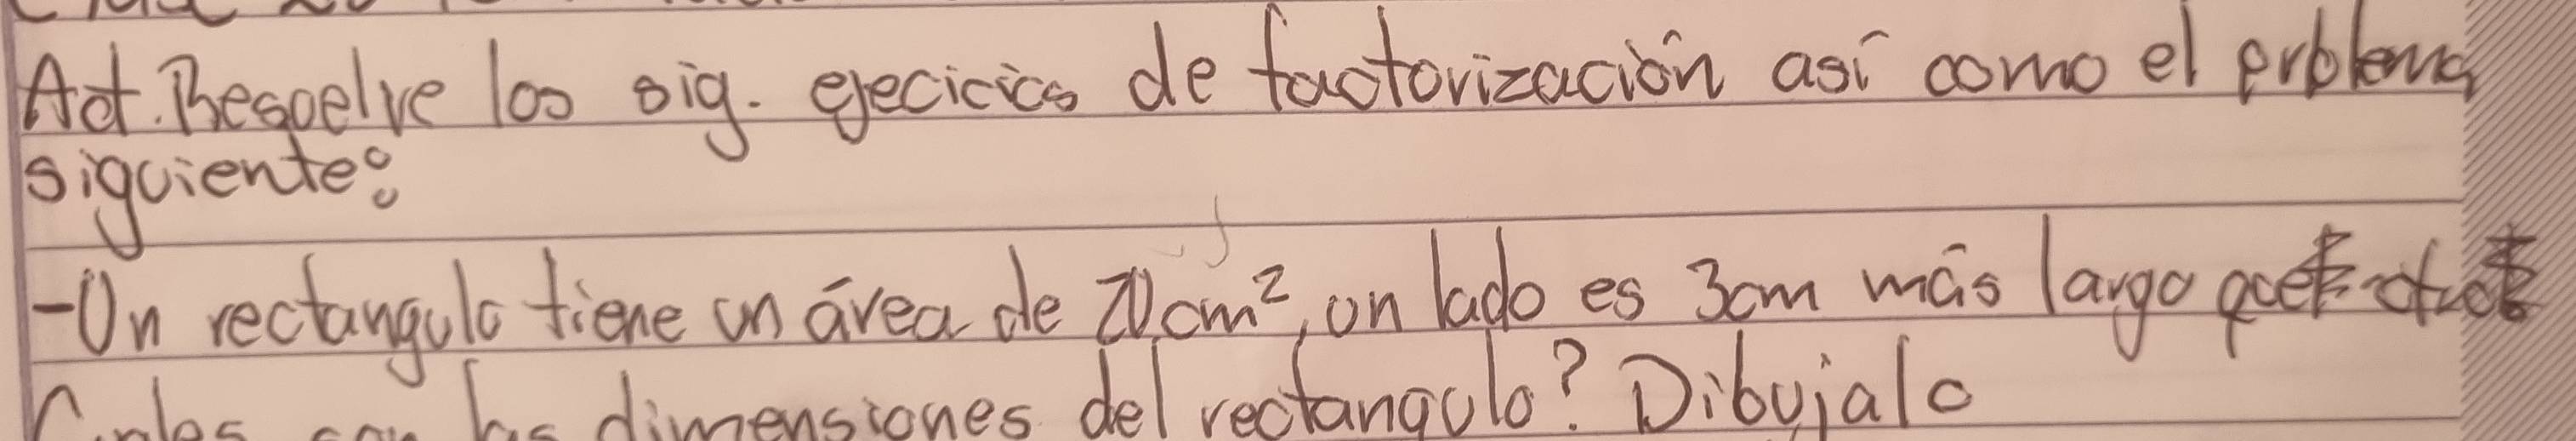 Act. Resuelve los sig. ejecicios de factorización así como el prblema
siguiente:
-Un rectangulo tiene un área de 70cm², un lado es 3cm más largo que
Cuales son las dimensiones del rectangulo? Dibujalo